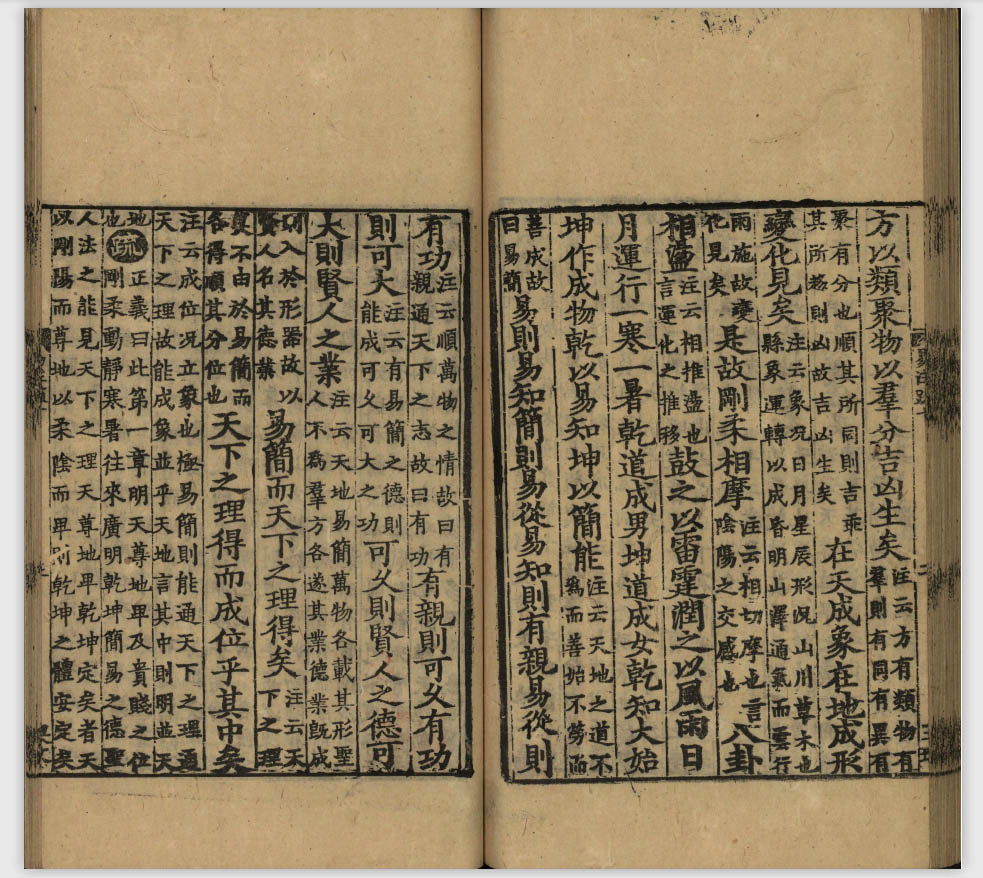 方以類聚物以羣分吉凶生矣注云方有類物有羣則有同有異有
聚有分也順其所同則吉乖其所趣則凶故吉凶生矣在天成象在地成形
變化見矣注云象况日月星辰形况山川草木也縣象運轉以成昏明山澤通氣而雲行
雨施故變化見矣是故剛柔相摩注云相切摩也言陰陽之交感也八卦
相盪注云相推盪也言運化之推移鼓之以雷霆潤之以風雨日
月運行一寒一暑乾道成男坤道成女乾知大始
坤作成物乾以易知坤以簡能注云天地之道不為而善始不勞而
善成故曰易簡易則易知簡則易從易知則有親易從則
有功注云順萬物之情故曰有親通天下之志故曰有功有親則可久有功
則可大注云有易簡之德則能成可久可大之功可久則賢人之德可
大則賢人之業注云天地易簡萬物各載其形聖人不為羣方各遂其業德業旣成
則入於形器故以賢人名其德業易簡而天下之理得矣注云天下之理
莫不由於易簡而各得順其分位也天下之理得而成位乎其中矣
注云成位况立象也極易簡則能通天下之理通天下之理故能成象並乎天地言其中則明並天
地也疏正義曰此第一章明天尊地卑及貴賤之位剛柔動靜寒暑往來廣明乾坤簡易之德聖
人法之能見天下之理天尊地卑乾坤定矣者天以剛陽而尊地以柔陰而卑則乾坤之體安定矣